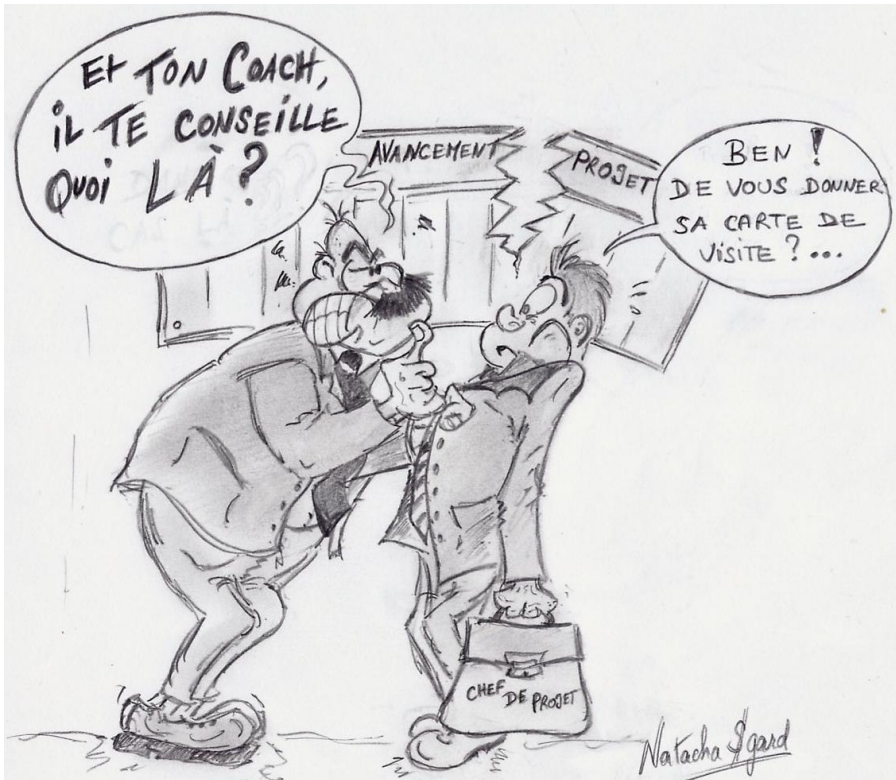 Et TON COACH,
iL TE CONSEILLE
QUOi LÀ ?
AVANCEMENT
PROJET
BEN !
DE VOUS DONNER
SA CARTE DE
VISITE ?...
CHEF
DE PROJET
Natacha Sgard